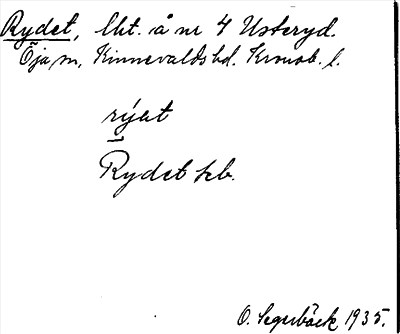 Rydet, lht. å nr 4 Usteryd.
Öja sn, Kinnevalds hd. Kronob. l.
rýet
Rydet kb.
O. Segerbäck 1935.